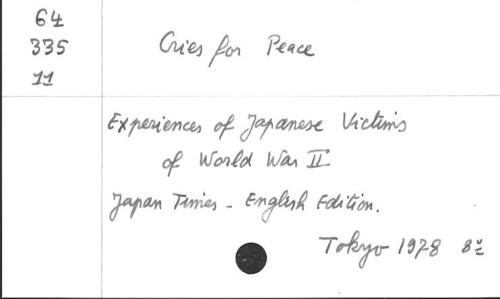 64
335
11
Cries for Peace
Experiences of Japanese Victims
of World War II
Japan Times - English Edition.
Tokyo 1978 8º